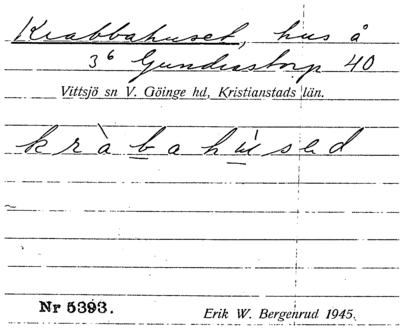 Krabbahuset, hus å
3⁶ Gundrastorp 40
Vittsjö sn V. Göinge hd, Kristianstads län.
kràbahùsed
Nr 5393.
Erik W. Bergenrud 1945.